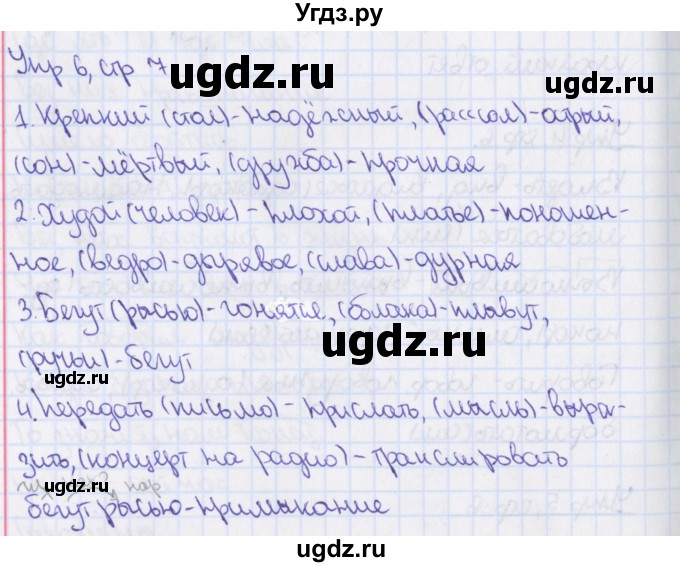 Угдз.ру
Упр 6, стр 7
ugdz.ru
ugdz.ru
1. Крепкий (стол)-надёжный, (рассол)-острый,
(сон)-мёртвый, (дружба)-прочная
2. Худой (человек)-плохой, (платье)-поношен-
ное, (ведро)-дырявое, (слава)-дурная
ugdz.ru
3. Бегут (рысью)-гонятся, (облака)-плывут,
ugdz.ru
(ручьи)-бегут
ugdz.ru
4. Передать (письмо)-прислать, (мысль)-выра-
зить, (концерт на радио)-транслировать
ugdz.ru
нар
бегут рысью-примыкание
ugdz.ru